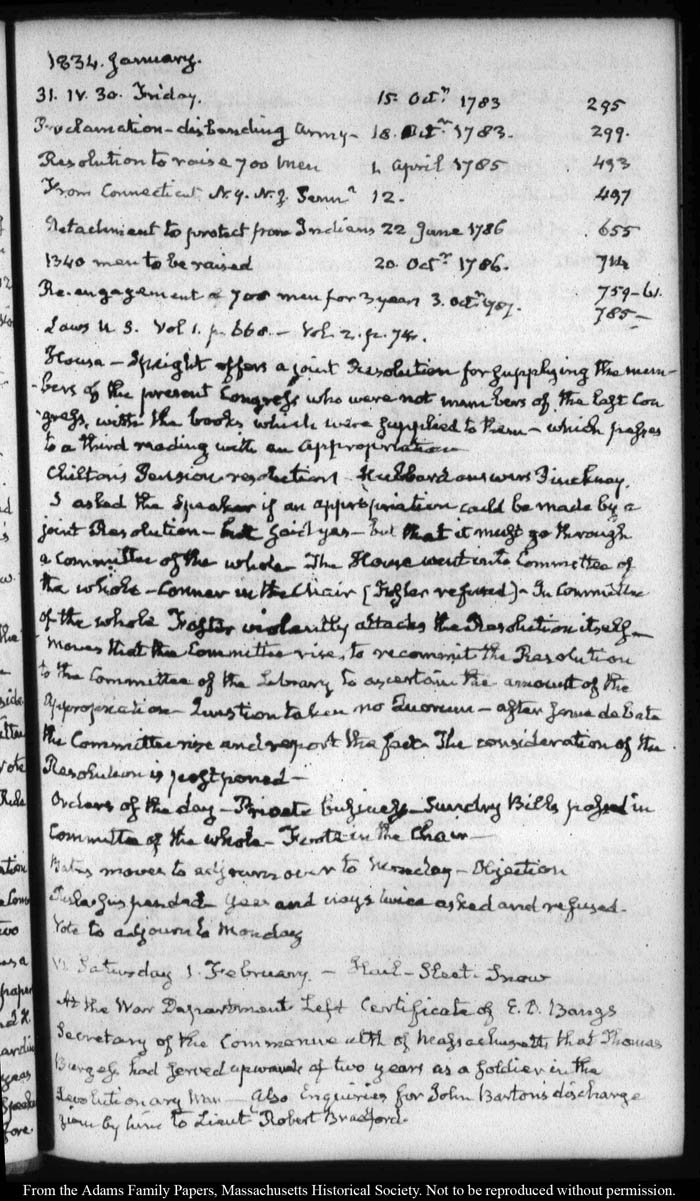 1834. January.
31. IV. 30. Friday. 15. Octr. 1783 295
Proclamation - disbanding Army - 18. Octr. 1783. 299.
Resolution to raise 700 men 1. April 1785 493
From Connecticut, N.Y. N.J. Penna. 12. 497
Detachment to protect from Indians 22 June 1786 655
1340 men to be raised 20. Octr. 1786. 714
Re-engagement of 700 men for 3 years 3. Octr. 787. 759-61.
785-
Laws U.S. Vol 1. p. 668. - Vol. 2. p. 74.
House - Speight offers a joint Resolution for supplying the mem-
-bers of the present Congress who were not members of the last Con
gress, with the books which were supplied to them - which passes
to a third reading with an appropriation
Chilton's Pension resolution Hubbard answers Pinckney.
I asked the Speaker if an appropriation could be made by a
joint Resolution - he said yes - but that it must go through
a Committee of the whole - The House went into Committee of
the whole - Conner in the Chair (Foster refused) - In Committee
of the whole Foster violently attacks the Resolution itself -
moves that the Committee rise, to recommit the Resolution
to the Committee of the Library to ascertain the amount of the
appropriation - Question taken no Quorum - after some debate
the Committee rise and report the fact. The consideration of the
Resolution is postponed -
Orders of the day - Private business - Sundry Bills passed in
Committee of the whole - in the Chair -
Bates moves to adjourn over to Monday - Objection
Rule suspended - Yeas and nays twice asked and refused.
Vote to adjourn to Monday
VI. Saturday 1. February. - Hail - Sleet - Snow
At the War Department Left Certificate of E. D. Bangs
Secretary of the Commonwealth of Massachusetts, that Thomas
Burgess had served upwards of two years as a soldier in the
Revolutionary War - Also Enquiries for John Barton's discharge
given by him to Lieut Robert Bradford.
From the Adams Family Papers, Massachusetts Historical Society. Not to be reproduced without permission.